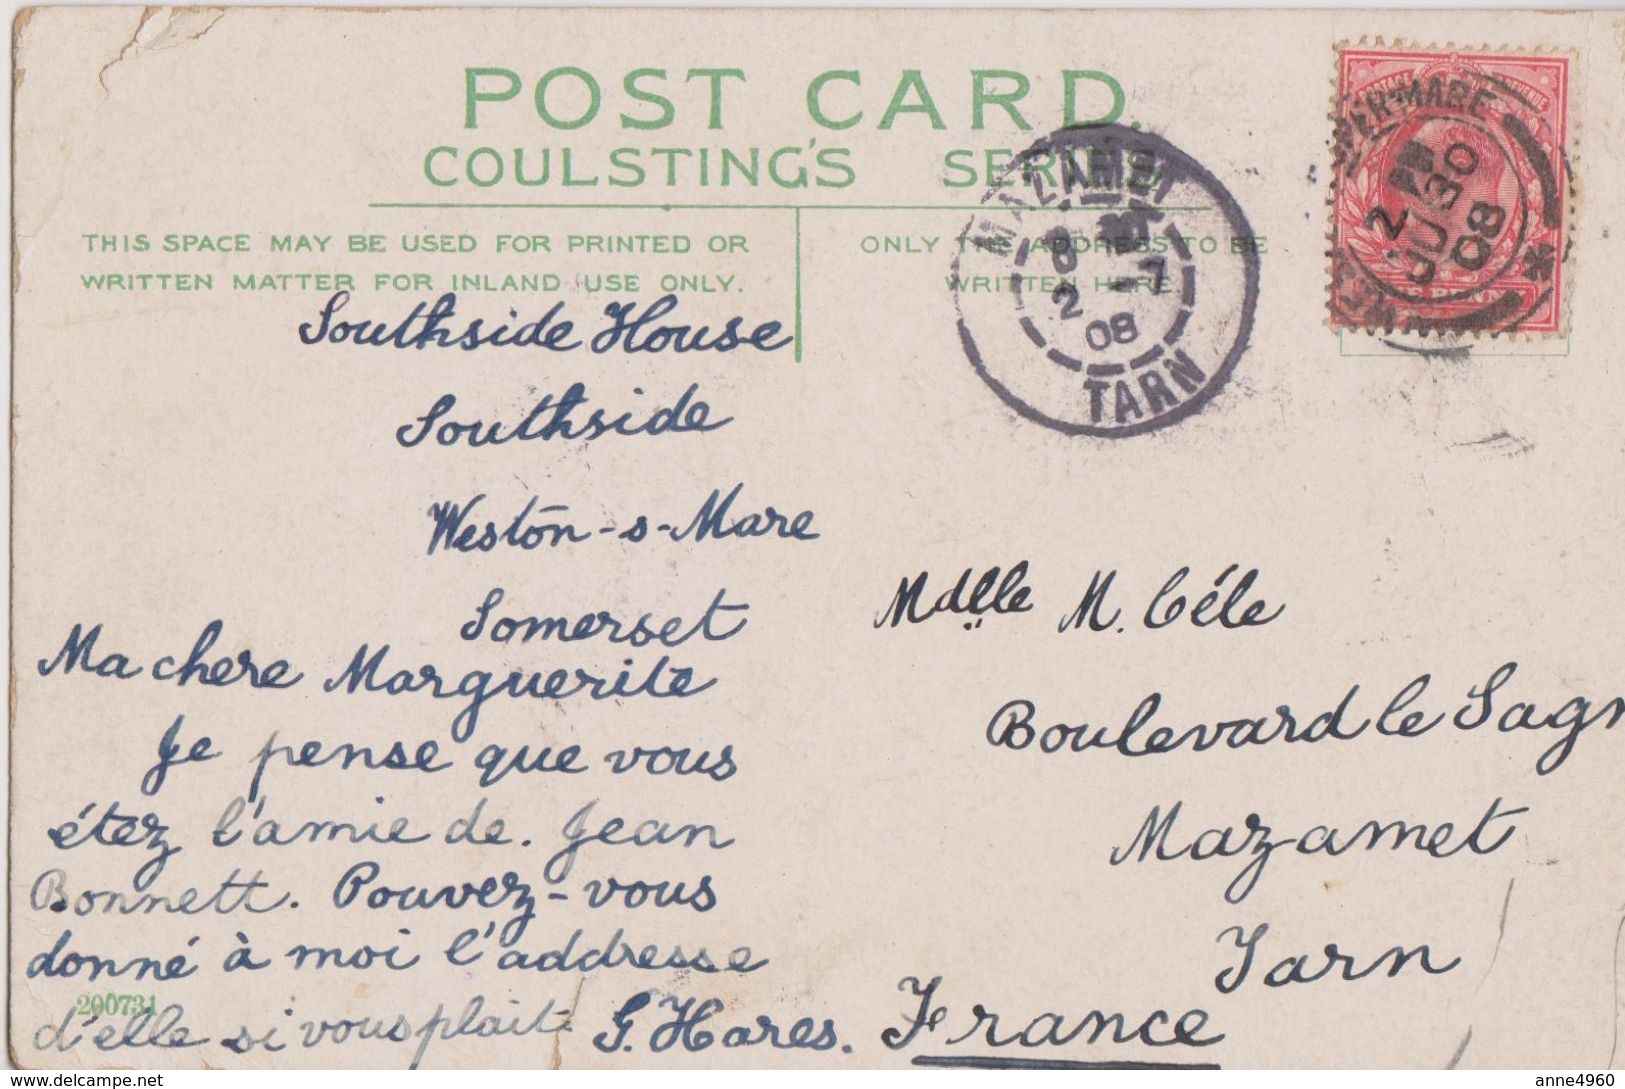 POST CARD.
COULSTING'S SERIES
THIS SPACE MAY BE USED FOR PRINTED OR
WRITTEN MATTER FOR INLAND USE ONLY.
ONLY THE ADDRESS TO BE
WRITTEN HERE.
MAZAMET
8
2 -7
08
TARN
PER-MARE
2
JU 30
08
Southside House
Southside
Weston-s-Mare
Somerset
Ma chere Marguerite
Je pense que vous
étez l'amie de. Jean
Bonnett. Pouvez-vous
donné à moi l'addresse
d'elle si vous plait.
G. Hares.
200731
Mdlle M. Céle
Boulevard le Sagn
Mazamet
Tarn
France
delcampe.net
anne4960